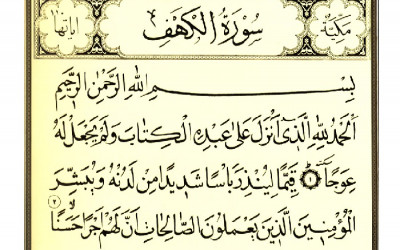 مكية سورة الكهف اياتها
بِسْمِ اللهِ الرَّحْمٰنِ الرَّحِيمِ
اَلْحَمْدُ لِلّٰهِ الَّذِىٓ اَنْزَلَ عَلٰى عَبْدِهِ الْكِتَابَ وَلَمْ يَجْعَلْ لَهُ
عِوَجًا ۜ ١ قَيِّمًا لِيُنْذِرَ بَاْسًا شَدِيدًا مِنْ لَدُنْهُ وَيُبَشِّرَ
الْمُؤْمِنِينَ الَّذِينَ يَعْمَلُونَ الصَّالِحَاتِ اَنَّ لَهُمْ اَجْرًا حَسَنًا ۙ ٢